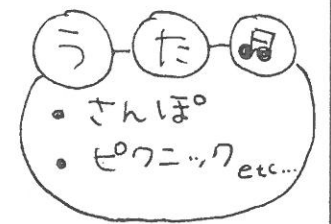 うた
• さんぽ
• ピクニック etc...